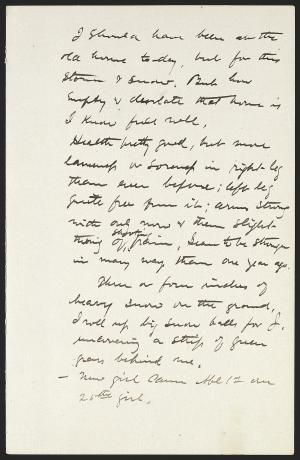 I should have been at the
old home to-day, but for this
storm & snow. But how
empty & desolate that home is
I know full well.
Health pretty good, but more
lameness or soreness in right leg
than ever before; left leg
quite free from it; arms strong
with only now & then slight
shooting
of pain, seem to be stronger
in many way than one year ago.
Three or four inches of
heavy snow on the ground,
I roll up big snow balls for J.
uncovering a strip of green
grass behind me.
– New girl came
girl.